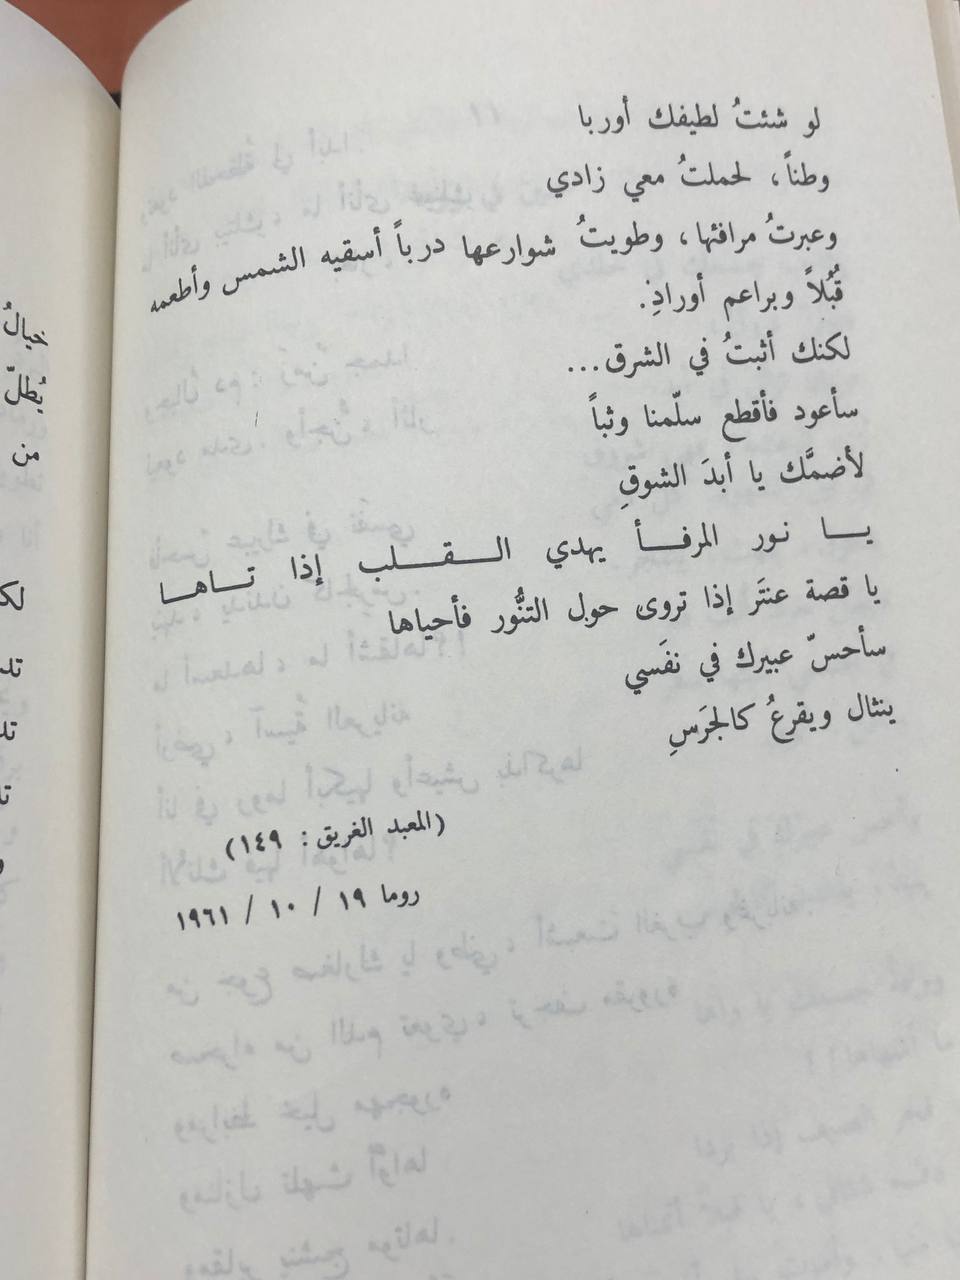 لو شئتُ لطيفك أوربا
وطناً، لحملتُ معي زادي
وعبرتُ مرافئها، وطويتُ شوارعها درباً أسقيه الشمس وأطعمه
قُبُلاً وبراعم أورادِ.
لكنك أثبتُ في الشرق...
سأعود فأقطع سلّمنا وثباً
لأضمَّك يا أبدَ الشوقِ
يا نور المرفأ يهدي القلب إذا تاها
يا قصة عنتَر إذا تروى حول التنُّور فأحياها
سأحسّ عبيرك في نفَسي
ينثال ويقرعُ كالجرَسِ
(المعبد الغريق: ١٤٩)
روما ١٩ / ١٠ / ١٩٦١
خيالُ
يُطلّ
من